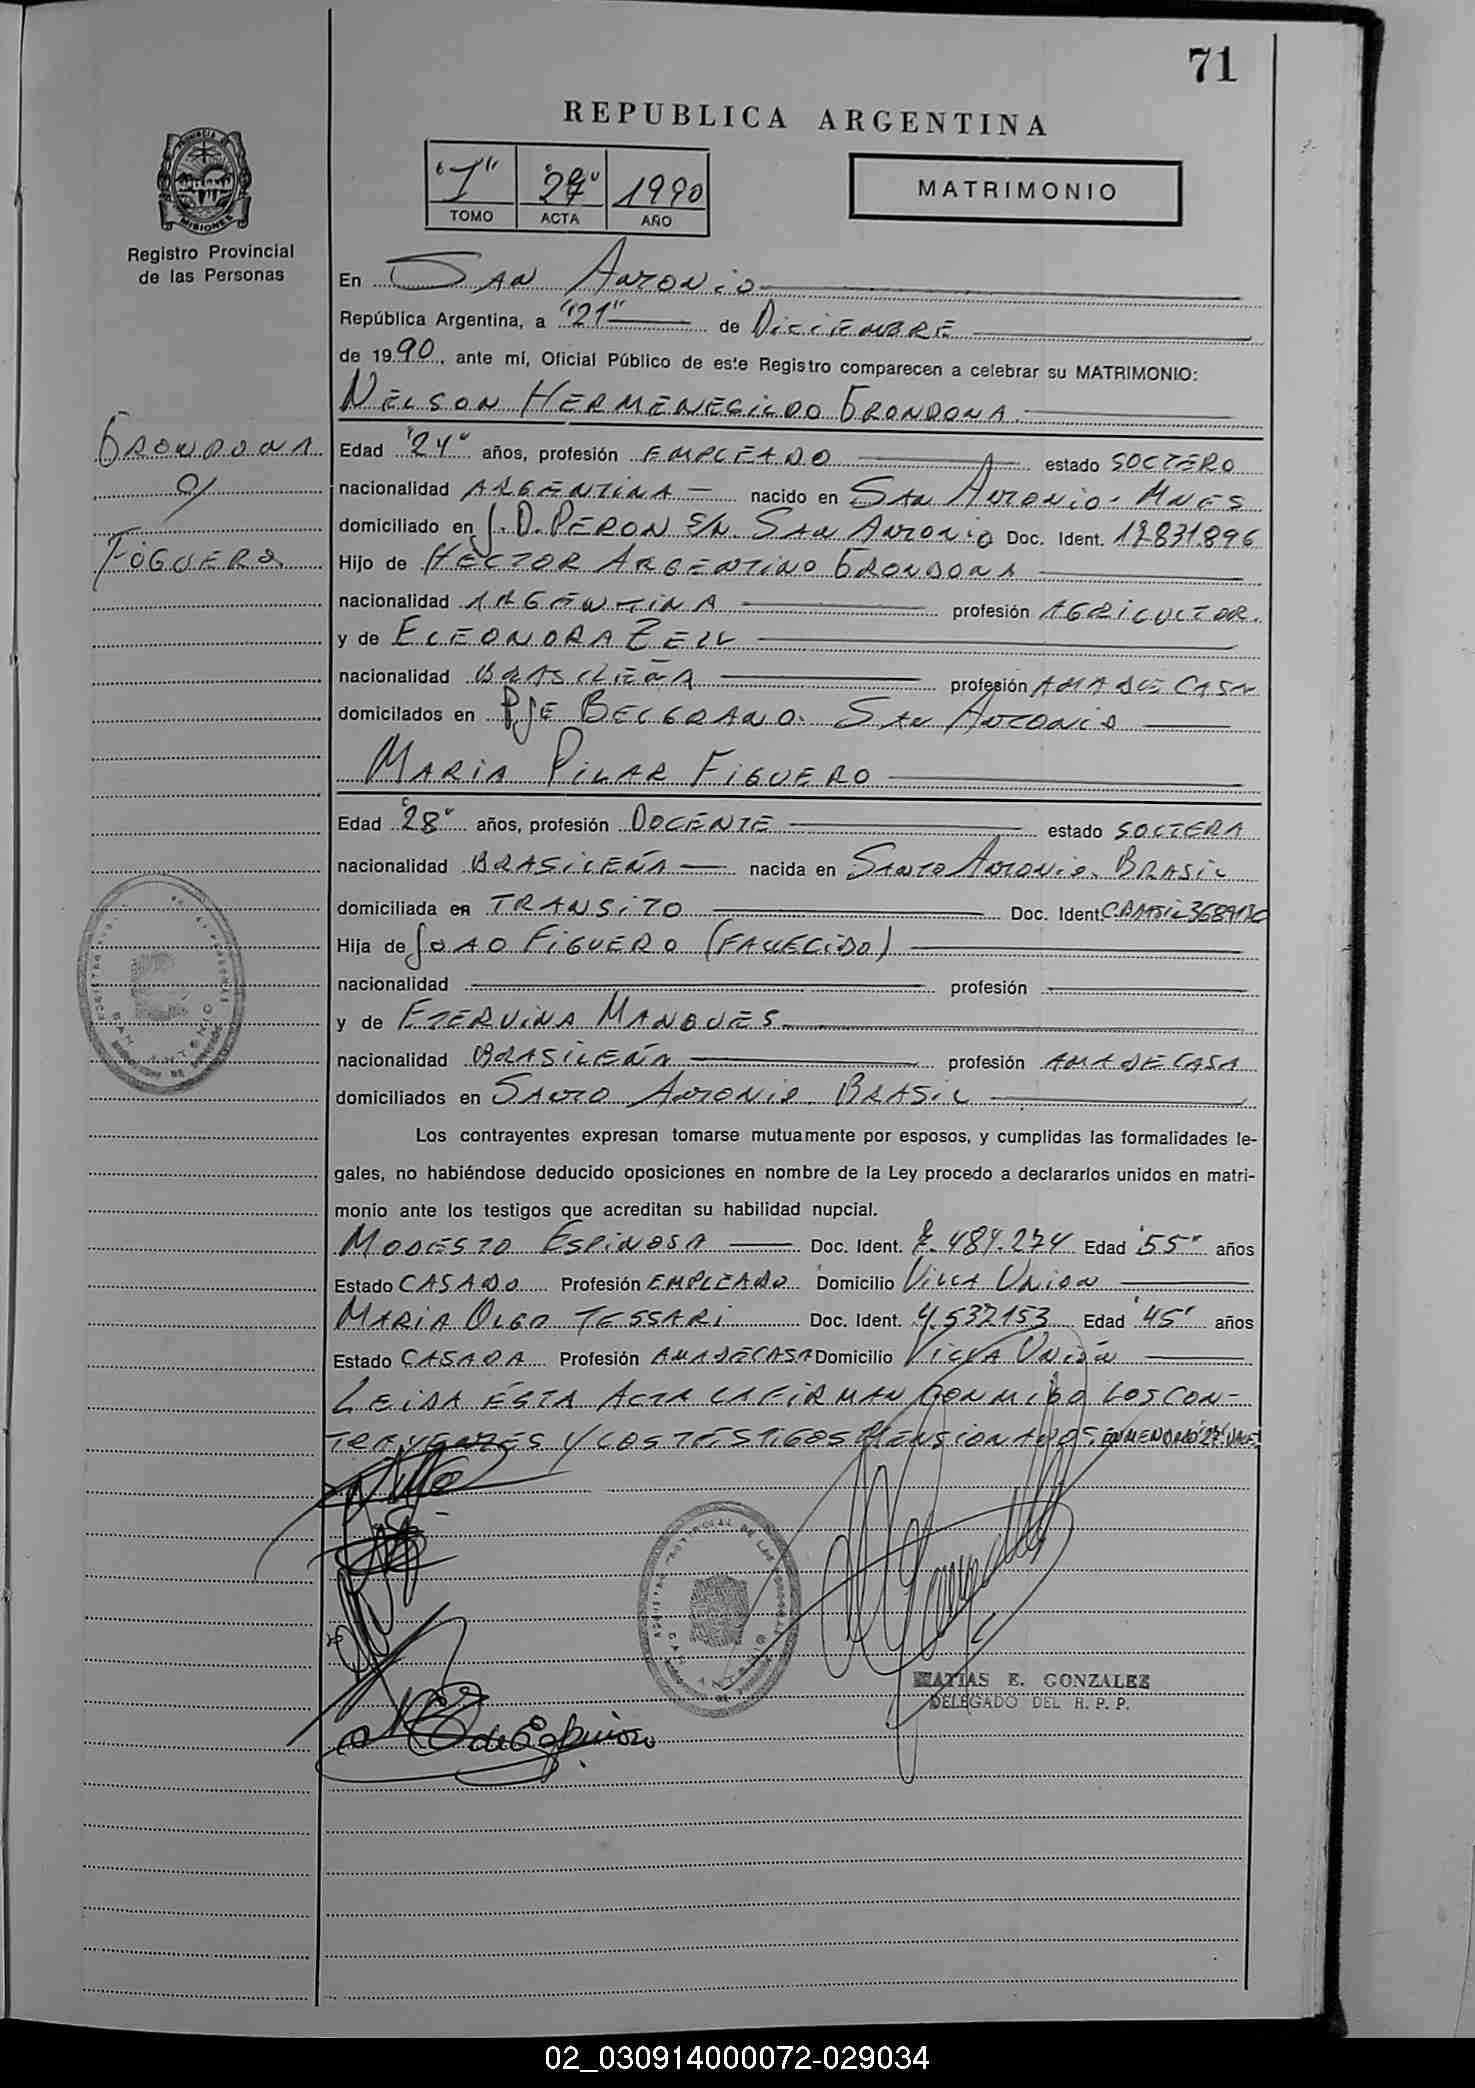 71
REPUBLICA ARGENTINA
"1" "27" 1990
TOMO ACTA AÑO
MATRIMONIO
PROVINCIA DE MISIONES
Registro Provincial
de las Personas
En SAN ANTONIO
República Argentina, a "21" de DICIEMBRE
de 1990, ante mí, Oficial Público de este Registro comparecen a celebrar su MATRIMONIO:
NELSON HERMENEGILDO GRONDONA.
GRONDONA
c/
FIGUERO
Edad "24" años, profesión EMPLEADO estado SOLTERO
nacionalidad ARGENTINA nacido en SAN ANTONIO - MNES
domiciliado en J.D. PERON S/N. SAN ANTONIO Doc. Ident. 17831.896
Hijo de HECTOR ARGENTINO GRONDONA
nacionalidad ARGENTINA profesión AGRICULTOR.
y de ELEONORA ZELL
nacionalidad BRASILEÑA profesión AMA DE CASA
domicilados en PJE BELGRANO. SAN ANTONIO
MARIA PILAR FIGUERO
Edad "28" años, profesión DOCENTE estado SOLTERA
nacionalidad BRASILEÑA nacida en SANTO ANTONIO. BRASIL
domiciliada en TRANSITO Doc. Ident.
Hija de JOAO FIGUERO (FALLECIDO)
nacionalidad profesión
y de ETERVINA MARQUES.
nacionalidad BRASILEÑA profesión AMA DE CASA
domiciliados en SANTO ANTONIO. BRASIL
Los contrayentes expresan tomarse mutuamente por esposos, y cumplidas las formalidades le-
gales, no habiéndose deducido oposiciones en nombre de la Ley procedo a declararlos unidos en matri-
monio ante los testigos que acreditan su habilidad nupcial.
MODESTO ESPINOSA Doc. Ident. 7.484.274 Edad "55" años
Estado CASADO Profesión EMPLEADO Domicilio VILLA UNION
MARIA OLGA TESSARI Doc. Ident. 4.532153 Edad "45" años
Estado CASADA Profesión AMA DE CASA Domicilio VILLA UNIÓN
LEIDA ÉSTA ACTA LA FIRMAN CONMIGO LOS CON-
TRAYENTES Y LOS TESTIGOS MENSIONADOS, ENMENDADO "27" VALE.
REGISTRO PROVINCIAL DE LAS PERSONAS
SAN ANTONIO
de Espinosa
MATIAS E. GONZALEZ
DELEGADO DEL R. P. P.
02_030914000072-029034